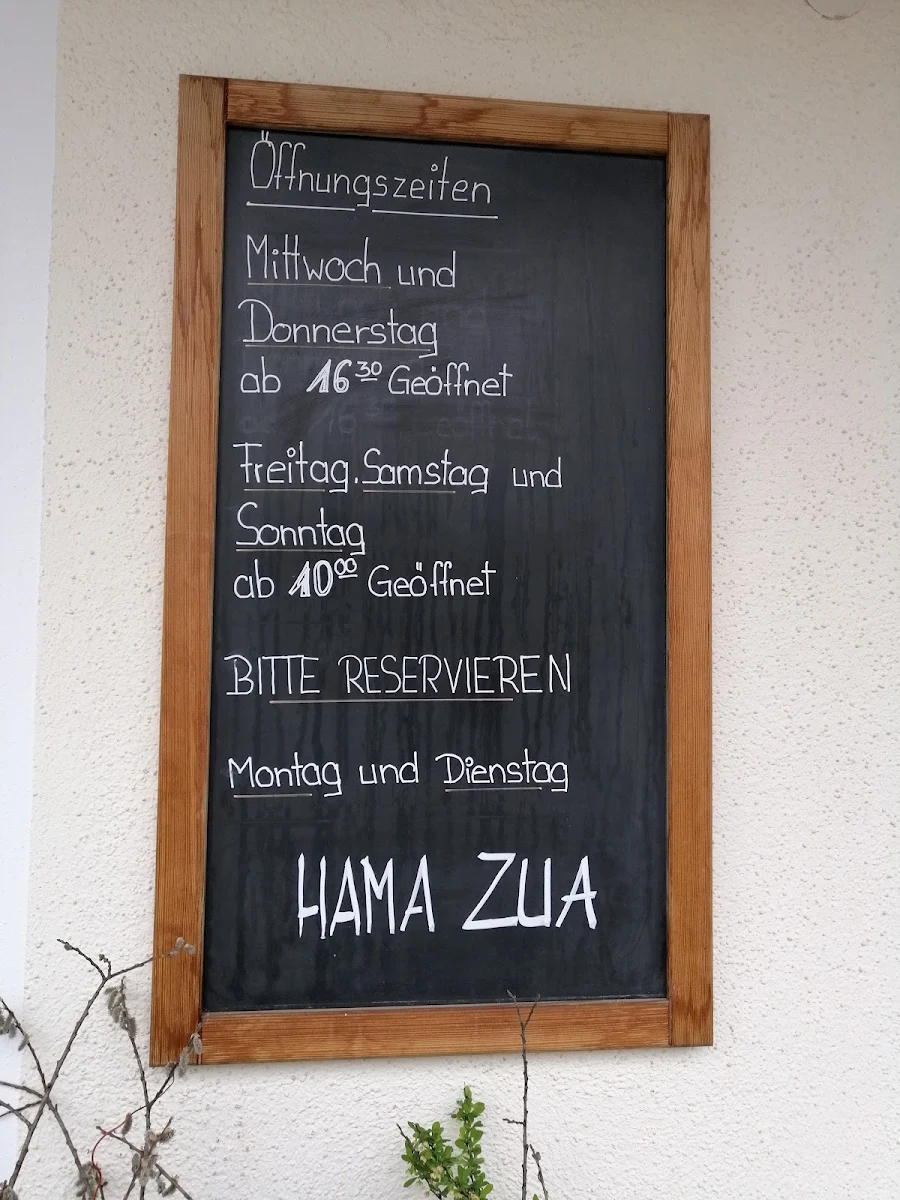 Öffnungszeiten
Mittwoch und
Donnerstag
ab 16³⁰ Geöffnet
Freitag. Samstag und
Sonntag
ab 10⁰⁰ Geöffnet
BITTE RESERVIEREN
Montag und Dienstag
HAMA ZUA